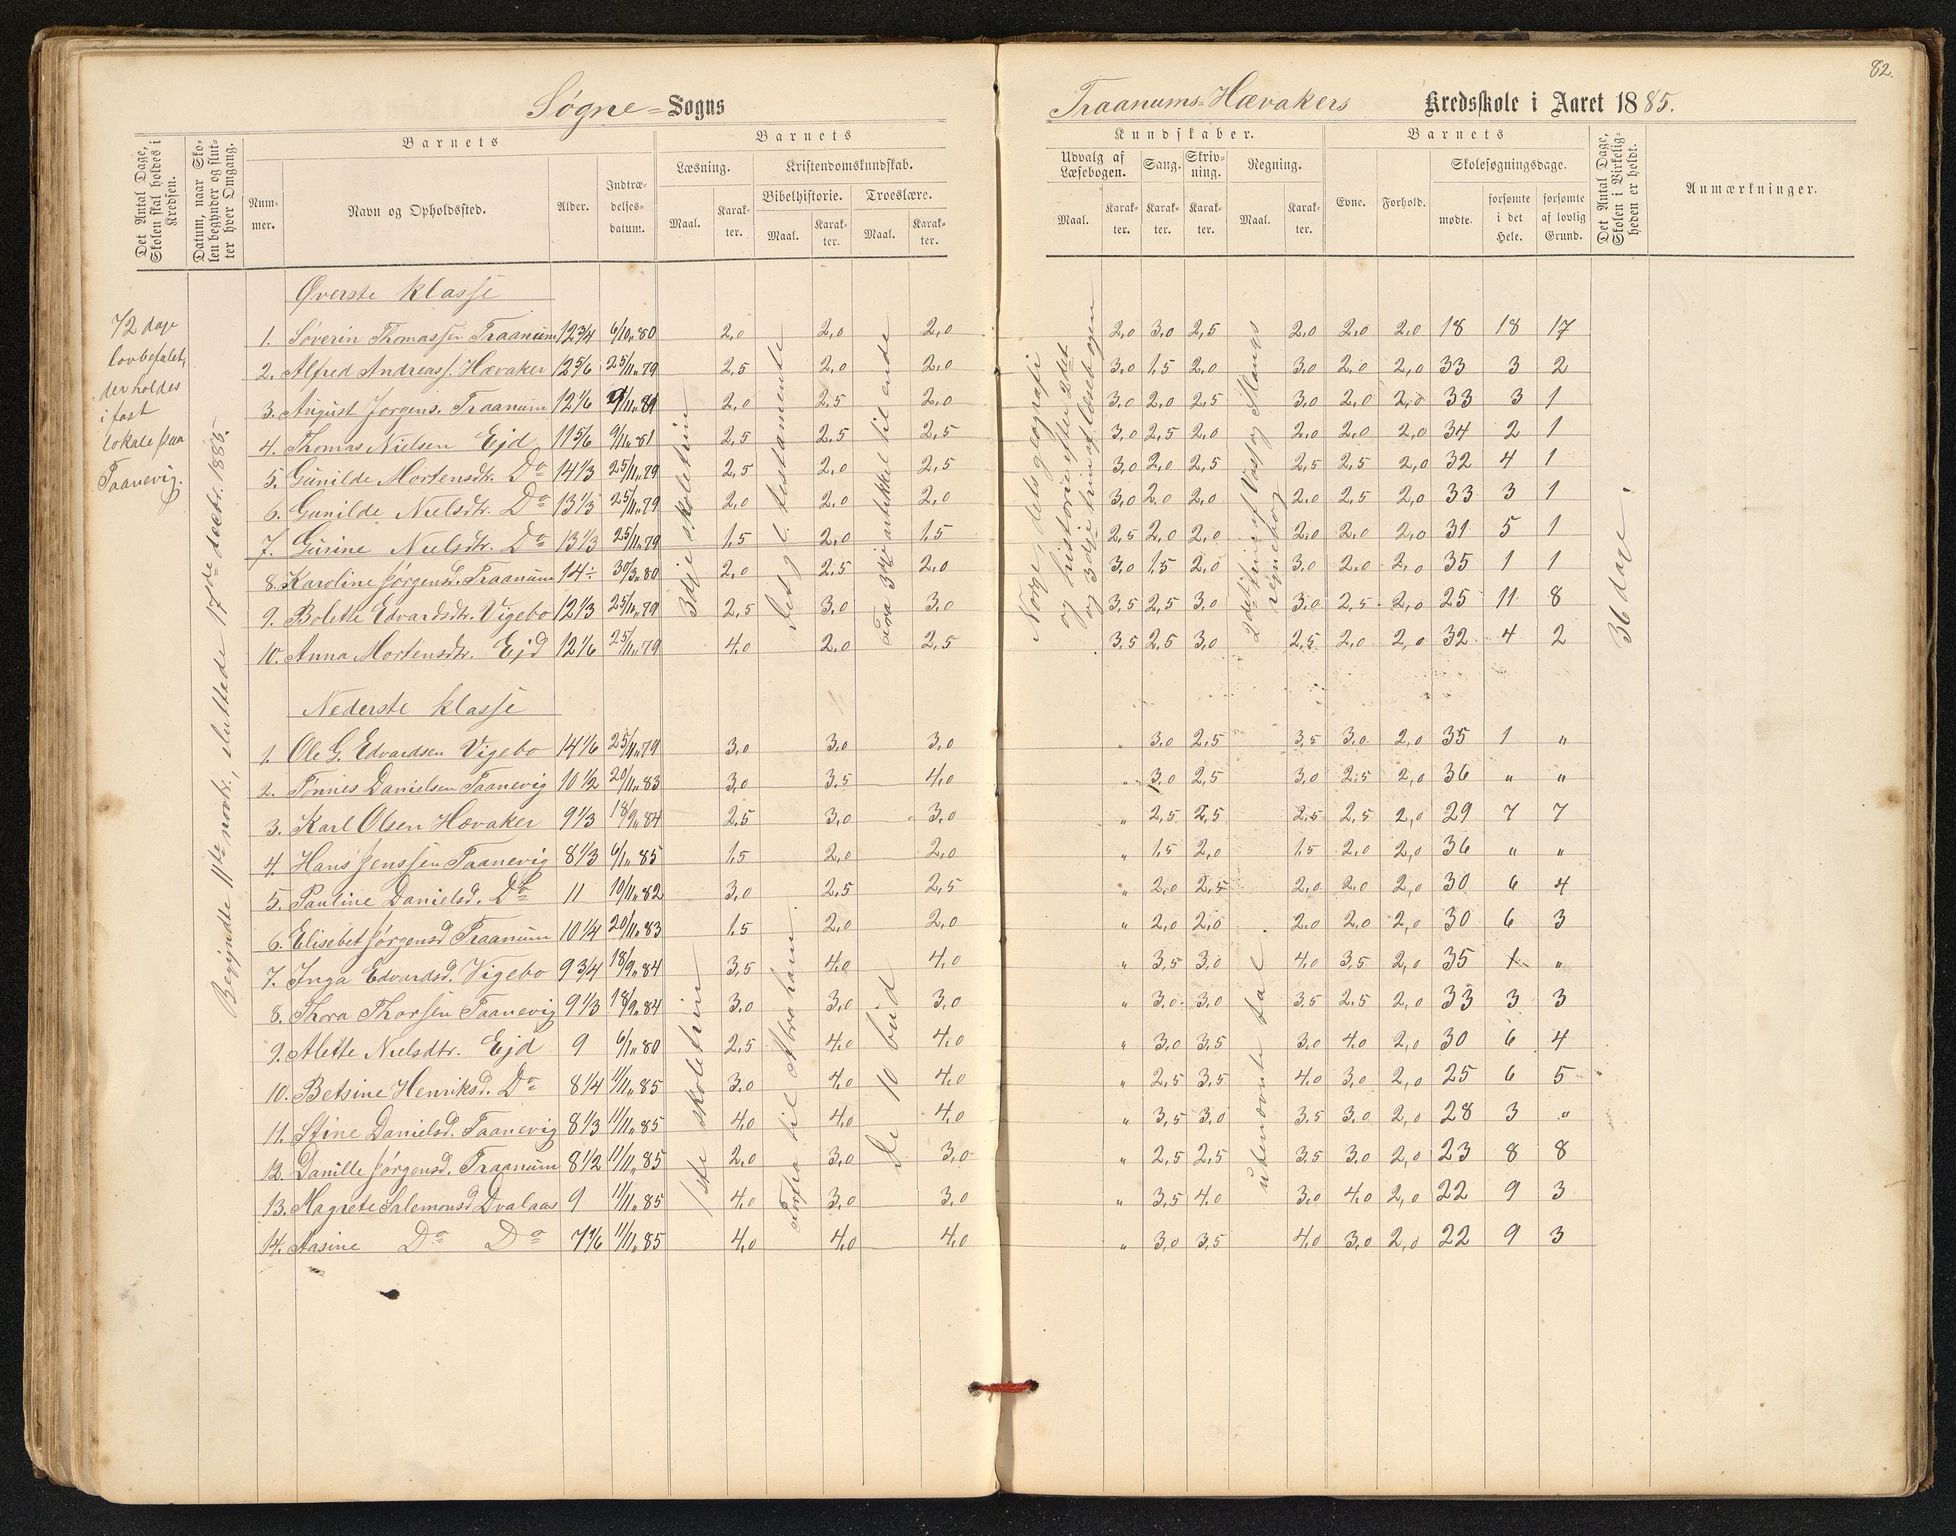 82.
Søgne = Sogns
Traanums=Hævakers Kredsskole i Aaret 1885.
Det Antal Dage, Skolen skal holdes i Kredsen.
Datum, naar Skolen begynder og slutter hver Omgang.
Barnets
Nummer.
Navn og Opholdssted.
Alder.
Indtrædelsesdatum.
Barnets
Læsning.
Maal.
Karakter.
Kristendomskundskab.
Bibelhistorie.
Maal.
Karakter.
Troeslære.
Maal.
Karakter.
Kundskaber.
Udvalg af Læsebogen.
Maal.
Karakter.
Sang.
Karakter.
Skrivning.
Karakter.
Regning.
Maal.
Karakter.
Barnets
Evne.
Forhold.
Skolesøgningsdage.
mødte.
forsømte i det Hele.
forsømte af lovlig Grund.
Det Antal Dage, Skolen i Virkeligheden er holdt.
Anmærkninger.
72 dage
lovbefalet,
der holdes
i fast
lokale paa
Taanevig.
Begyndte 11te novbr., sluttede 17de decbr. 1885.
Øverste klasse
1. Søverin Thomassen Traanum 12 3/4 6/10 80 2,0 2,0 2,0 2,0 3,0 2,5 2,0 2,0 2,0 18 18 17
2. Alfred Andreass. Hævaker 12 5/6 25/11 79 2,5 2,0 2,0 3,0 1,5 2,0 3,0 2,0 2,0 33 3 2
3. August Jørgens. Traanum 12 1/6 /11 81 2,0 2,5 2,0 3,0 2,0 2,5 3,0 2,0 2,0 33 3 1
4. Thomas Nielsen Ejd 11 5/6 9/11 81 2,5 2,5 2,5 3,0 2,5 2,0 2,0 2,0 2,0 34 2 1
5. Gunilde Mortensdtr. Do 14 1/3 25/11 79 2,5 2,0 2,5 3,0 2,0 2,5 2,5 2,5 2,0 32 4 1
6. Gunilde Nielsdtr. Do 13 1/3 25/11 79 2,0 2,0 2,0 3,0 2,0 2,0 2,0 2,5 2,0 33 3 1
7. Gurine Nielsdtr. Do 13 1/3 25/11 79 1,5 2,0 1,5 2,5 2,0 2,0 2,0 2,0 2,0 31 5 1
8. Karoline Jørgensd. Traanum 14 ÷ 30/3 80 2,0 2,5 2,0 3,0 1,5 2,0 3,0 2,0 2,0 35 1 1
9. Bolette Edvardsdtr. Vigebo 12 1/3 25/11 79 2,5 3,0 3,0 3,5 2,5 3,0 3,0 2,5 2,0 25 11 8
10. Anna Mortensdtr. Ejd 12 1/6 25/11 79 4,0 2,0 2,5 3,5 2,5 3,0 2,5 2,0 2,0 32 4 2
3dje skoletrin
Det gl. testamente
Fra 3die artikkel til ende
Norge, dets geografi
og historie efter 2det
og 3dje trin af læsebogen
2det trin af Vass og Stangs
regnebog
36 dage.
Nederste klasse
1. Ole G. Edvardsen Vigebo 14 1/6 25/11 79 3,0 3,0 3,0 " 3,0 2,5 3,5 3,0 2,0 35 1 "
2. Tønnes Danielsen Taanevig 10 1/2 20/11 83 3,0 3,5 4,0 " 3,0 2,5 3,0 2,5 2,0 36 " "
3. Karl Olsen Hævaker 9 1/3 18/9 84 2,5 3,0 3,0 " 2,5 2,5 2,5 2,5 2,0 29 7 7
4. Hans Jenssen Taanevig 8 1/3 6/1 85 1,5 2,0 2,0 " 1,5 2,0 1,5 2,0 2,0 36 " "
5. Pauline Danielsd. Do 11 10/11 82 3,0 2,5 2,5 " 2,0 2,5 2,0 2,0 2,0 30 6 4
6. Elisebet Jørgensd Traanum 10 1/4 20/11 83 1,5 2,0 2,0 " 2,0 2,0 2,0 2,0 2,0 30 6 3
7. Inga Edvardsd. Vigebo 9 3/4 18/9 84 3,5 4,0 4,0 " 3,5 3,0 4,0 3,5 2,0 35 1 "
8. Thora Thorsen Taanevig 9 1/3 18/9 84 3,0 3,0 3,0 " 3,0 3,0 3,5 2,5 2,0 33 3 3
9. Alette Nielsdtr. Ejd 9 6/1 80 2,5 4,0 4,0 " 3,0 3,5 3,0 4,0 2,0 30 6 4
10. Betsine Henriksd. Do 8 1/4 11/11 85 3,0 4,0 4,0 " 2,5 3,5 4,0 3,0 2,0 25 6 5
11. Stine Danielsd. Taanevig 8 1/3 11/11 85 4,0 4,0 4,0 " 3,5 3,0 3,5 3,0 2,0 28 3 "
12. Danille Jørgensd. Traanum 8 1/2 11/11 85 2,0 3,0 3,0 " 2,5 2,5 3,5 3,0 2,0 23 8 8
13. Magrete Salemonsd Dvalaas 9 11/11 85 4,0 3,0 3,0 " 3,5 4,0 3,0 4,0 2,0 22 9 3
14. Aasine Do Do 7 1/6 11/11 85 4,0 4,0 4,0 " 3,0 3,5 4,0 3,0 2,0 22 9 3
1ste skoletrin
Forfra til Abraham.
De 10 bud
ubenævnte tal